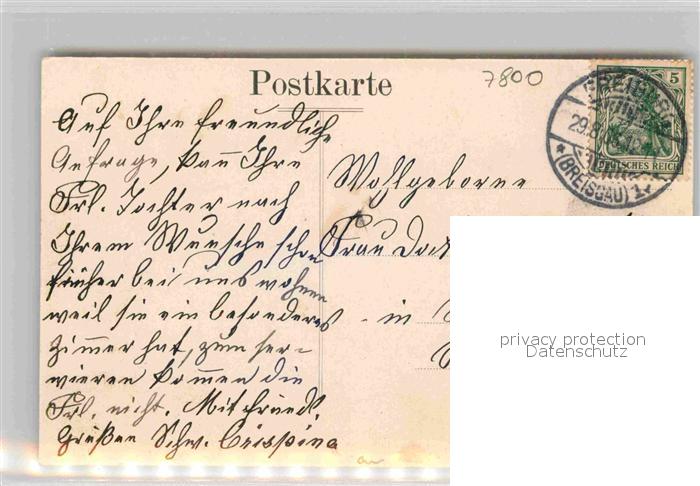 Postkarte
7800
Auf Ihre freundliche
Anfrage, kann Ihre
Frl. Tochter nach
Ihrem Wunsche schon
früher bei uns wohnen
weil sie ein besonderes
Zimmer hat, zum ser-
wieren kommen die
Frl. nicht. Mit freundl.
Grüßen Schw. Crispina
Wohlgeborne
Frau
in
FREIBURG
29.8
(BREISGAU)
5
DEUTSCHES REICH
privacy protection
Datenschutz